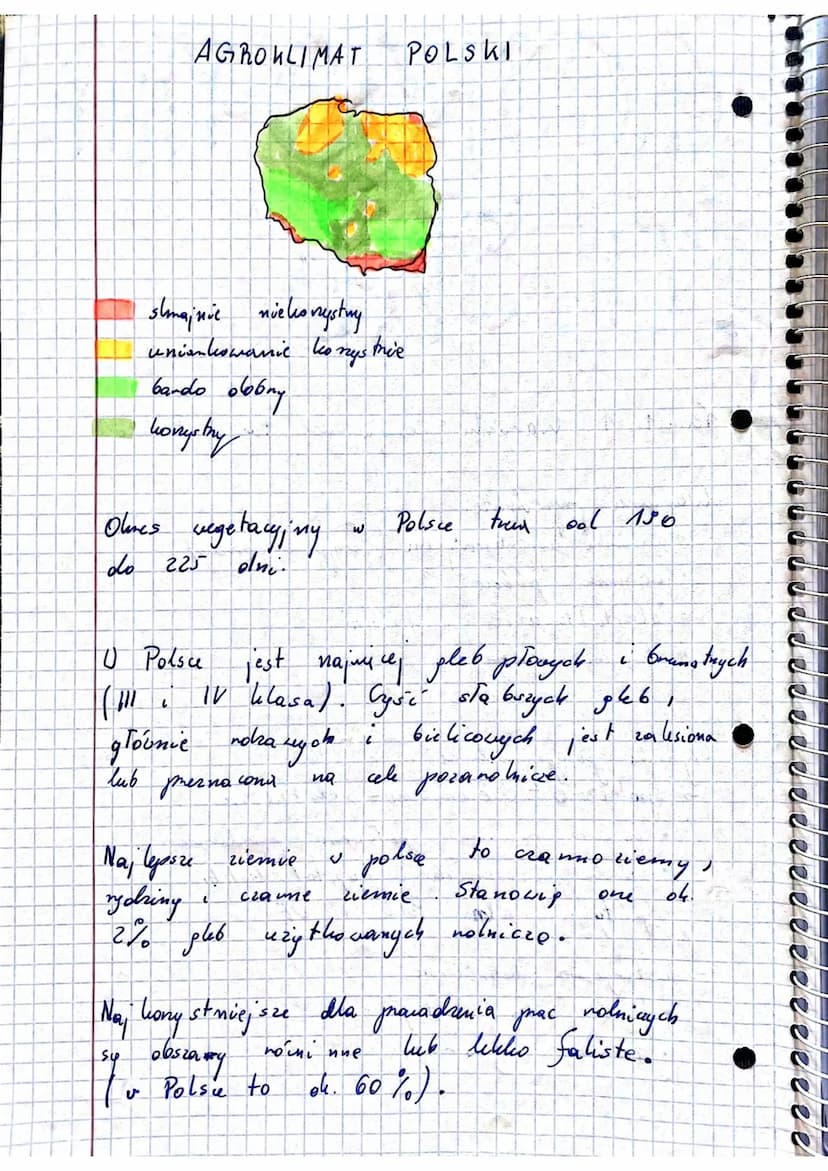 AGROKLIMAT POLSKI
skrajnie niekorzystny
umiarkowanie korzystnie
bardo dobny
korzystny
Okres wegetacyjny w Polsce trwa od 190
do 225 dni.
W Polsce jest najwięcej gleb płowych i brunatnych
(III i IV klasa). Część słabszych gleb,
głównie rdzawych i bielicowych jest zalesiona
lub przeznaczona na cele pozarolnicze.
Najlepsze ziemie w polsce to czarnoziemy,
rędziny i czarne ziemie. Stanowią one ok.
2% gleb użytkowanych rolniczo.
Najkorzystniejsze dla prowadzenia prac rolniczych
są obszary równinne lub lekko faliste.
(w Polsce to ok. 60%).